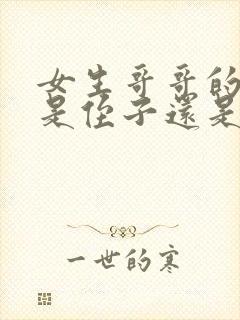 女生哥哥的
是侄子還是
一世的寒